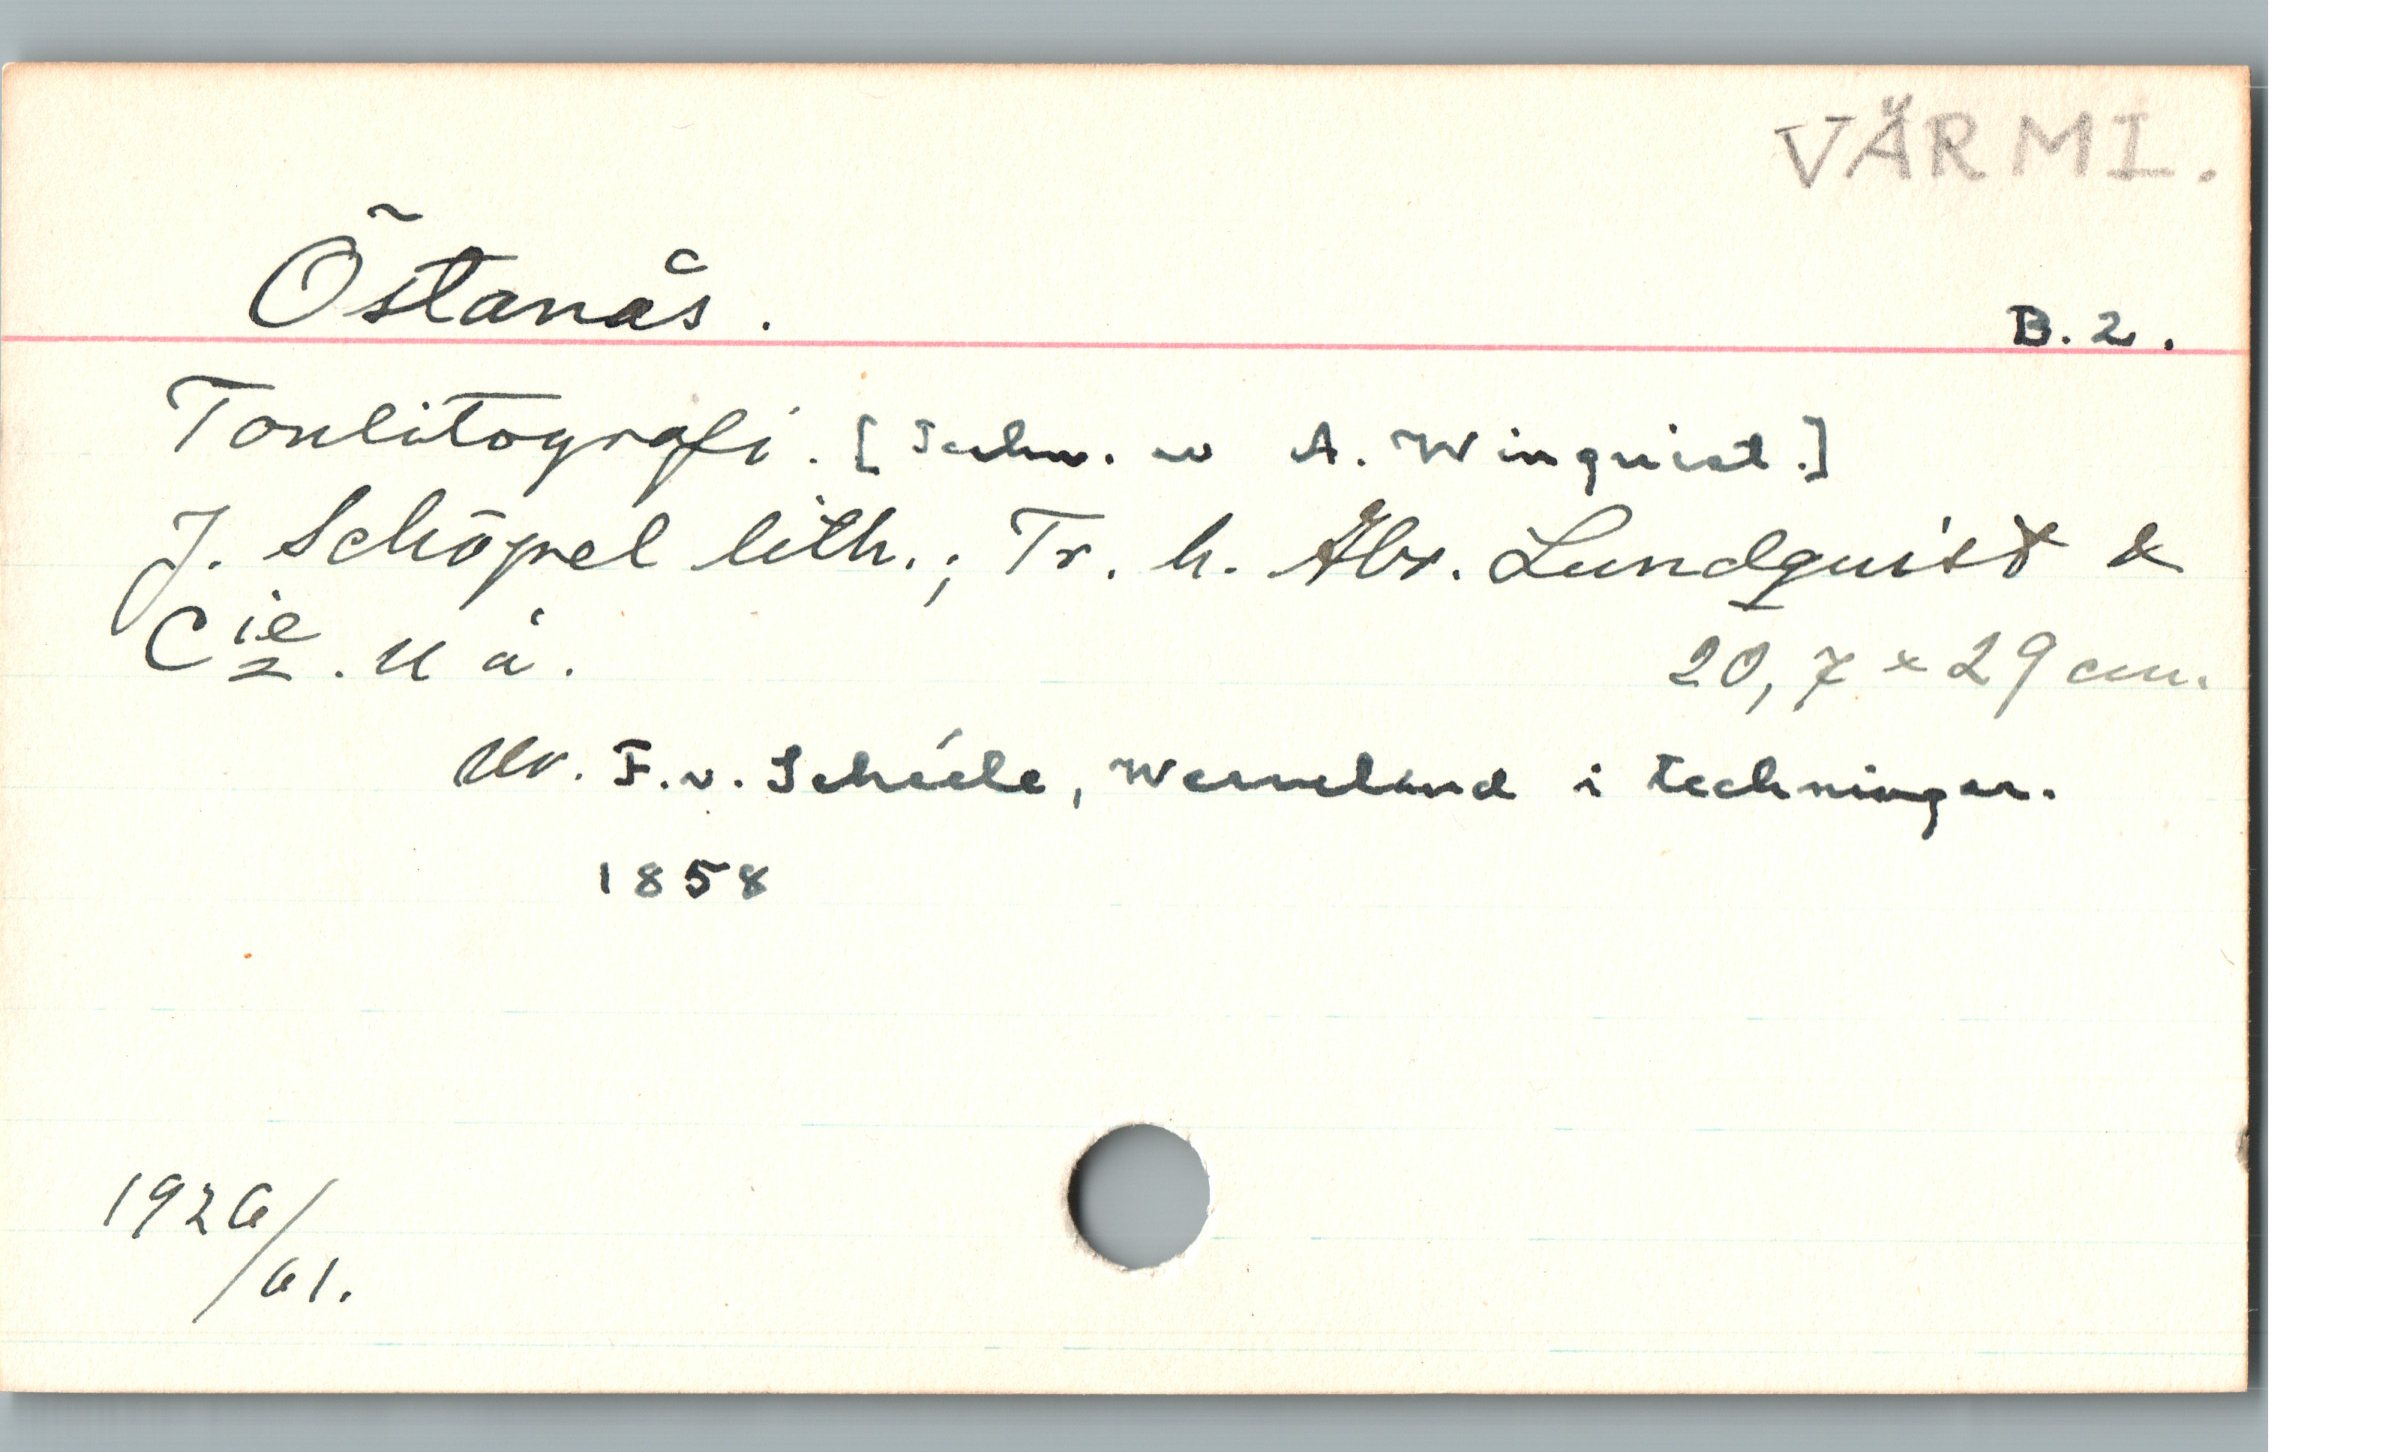 VÄRML.
Östanås.
B. 2.
Tonlitografi. [Techn. av A. Winquist.]
J. Schöpel lith.; Tr. h. Abr. Lundquist &
Cie. U å.
20,7 x 29 cm.
Ur. F. v. Schéele, Wermeland i teckningar.
1858
1926/
61.